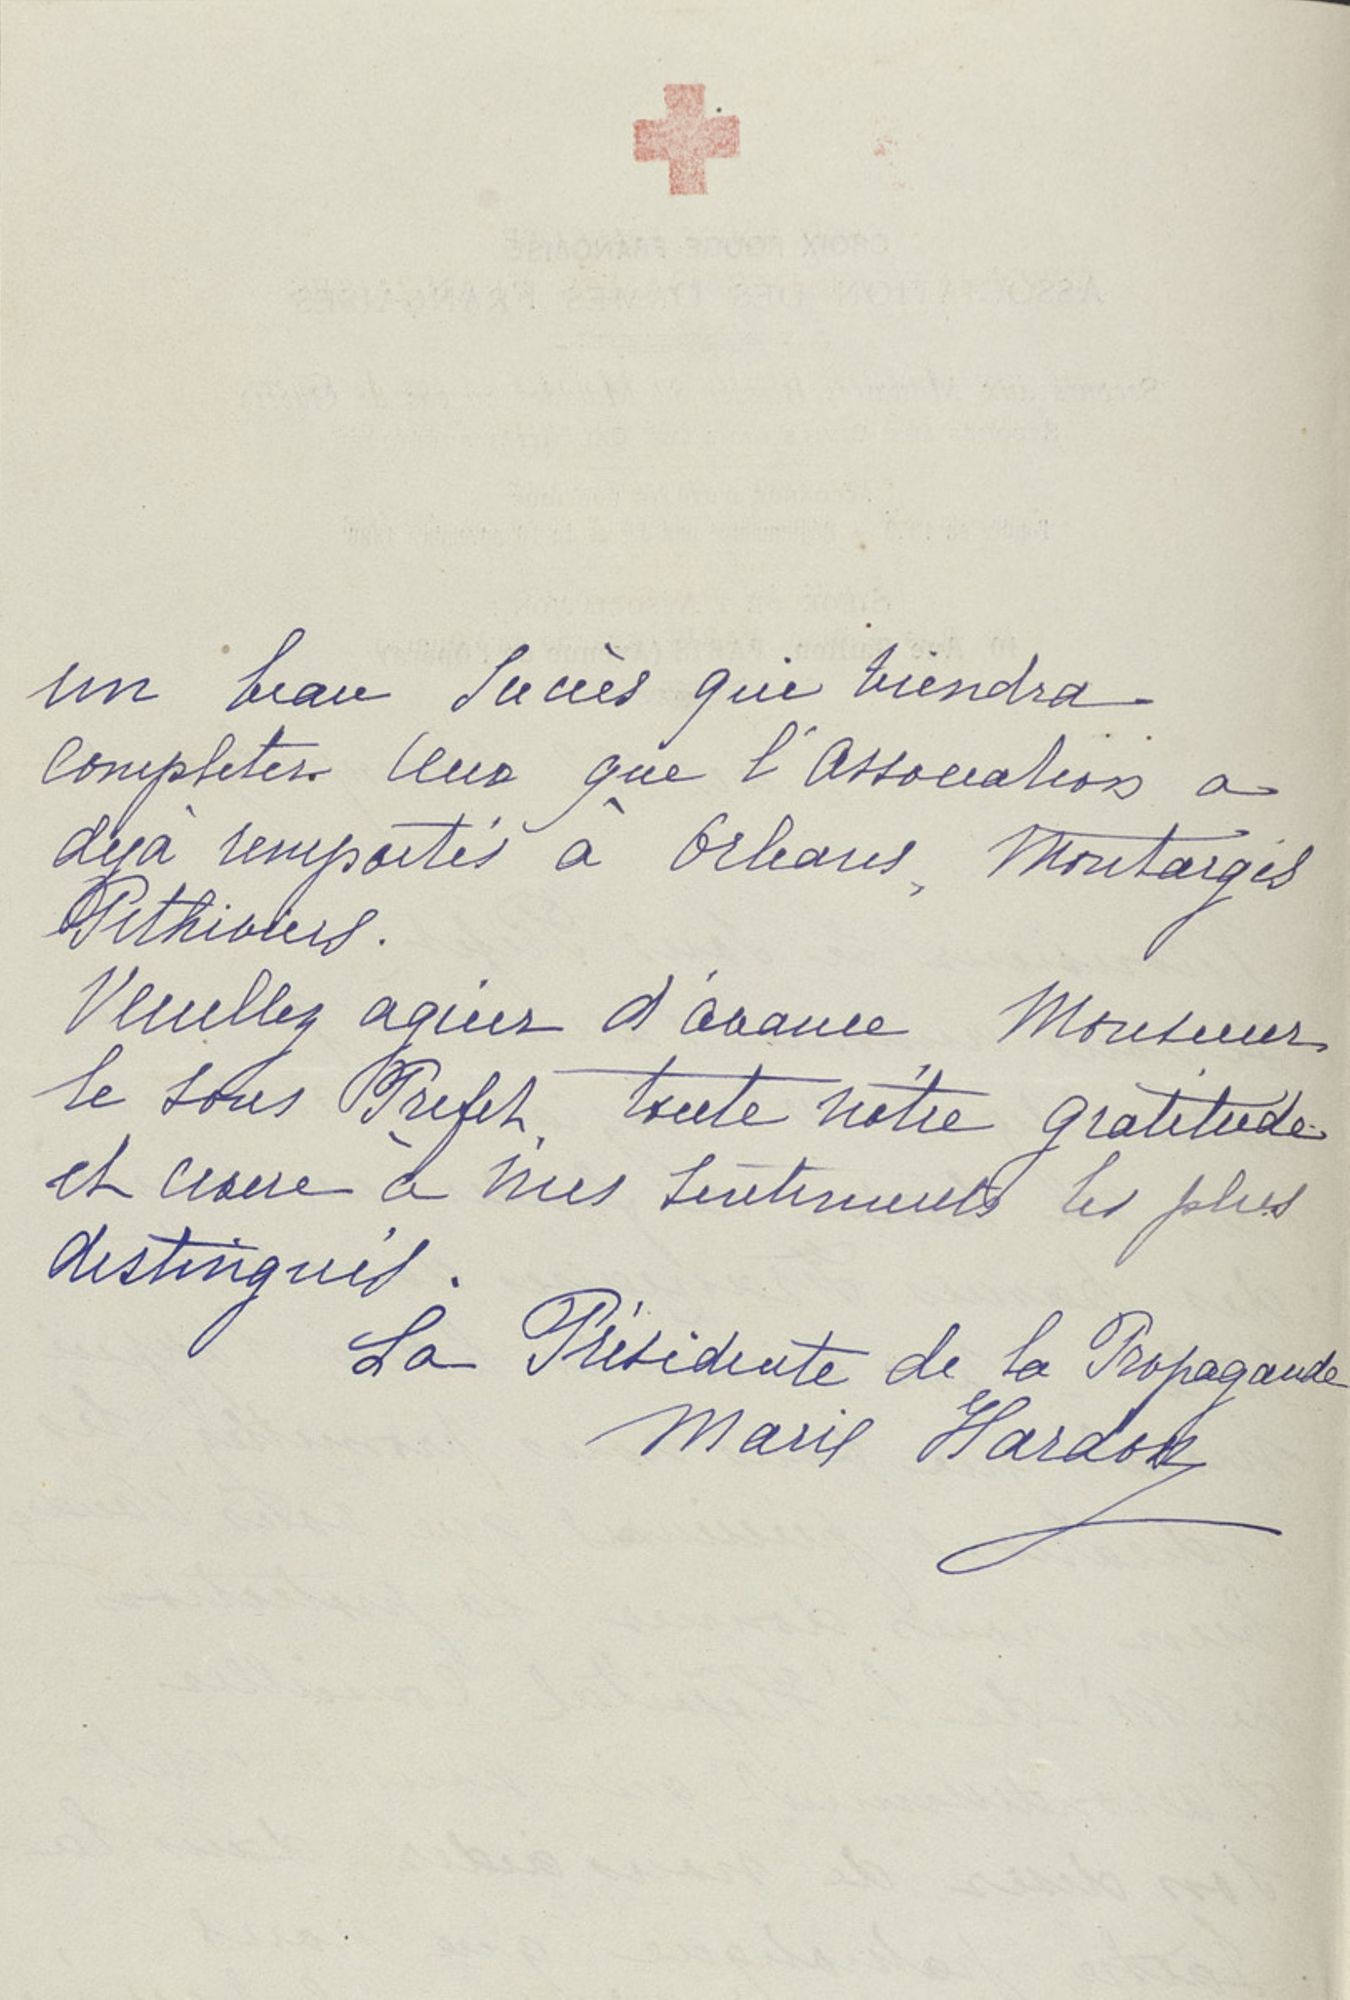 un beau succès qui viendra
completer ceux que l'Association a
dejà remportés à Orleans, Montargis
Pithiviers.
Veuillez agréer d'avance Monsieur
le sous Prefet, toute nôtre gratitude
et croire à mes sentiments les plus
distingués.
La Présidente de la Propagande
Marie Hardon